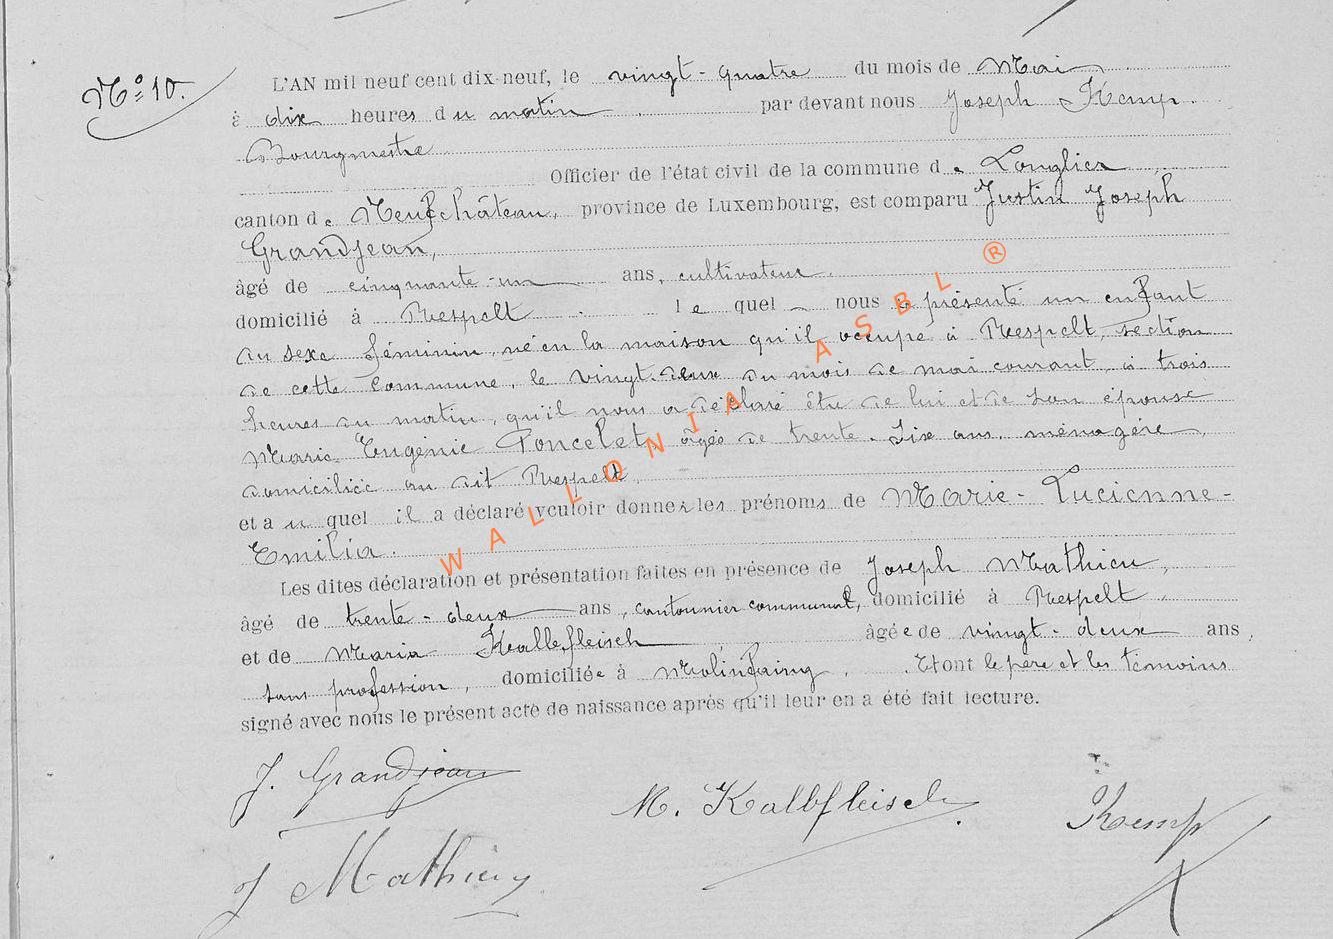 N° 10.
L'AN mil neuf cent dix-neuf, le vingt-quatre du mois de Mai
à dix heures du matin par devant nous Joseph Kemp.
Bourgmestre
Officier de l'état civil de la commune de Longlier
canton de Neufchâteau, province de Luxembourg, est comparu Justin Joseph
Grandjean,
âgé de cinquante-un ans, cultivateur.
domicilié à Respelt le quel nous a présenté un enfant
du sexe féminin, né en la maison qu'il occupe à Respelt, section
de cette commune, le vingt-deux du mois de mai courant, à trois
heures du matin, qu'il nous a déclaré être de lui et de son épouse
Marie Eugénie Poncelet, âgée de trente-six ans, ménagère,
domiciliée au dit Respelt,
et au quel il a déclaré vouloir donner les prénoms de Marie-Lucienne-
Emilia.
Les dites déclaration et présentation faites en présence de Joseph Mathieu,
âgé de trente-deux ans, cantonnier communal, domicilié à Respelt,
et de Maria Kallefleisch âgée de vingt-deux ans,
sans profession, domiciliée à Molinfaing, Et ont le père et les témoins
signé avec nous le présent acte de naissance après qu'il leur en a été fait lecture.
J. Grandjean
M. Kalbfleisch
Kemp
J Mathieu
WALLONIA ASBL ®